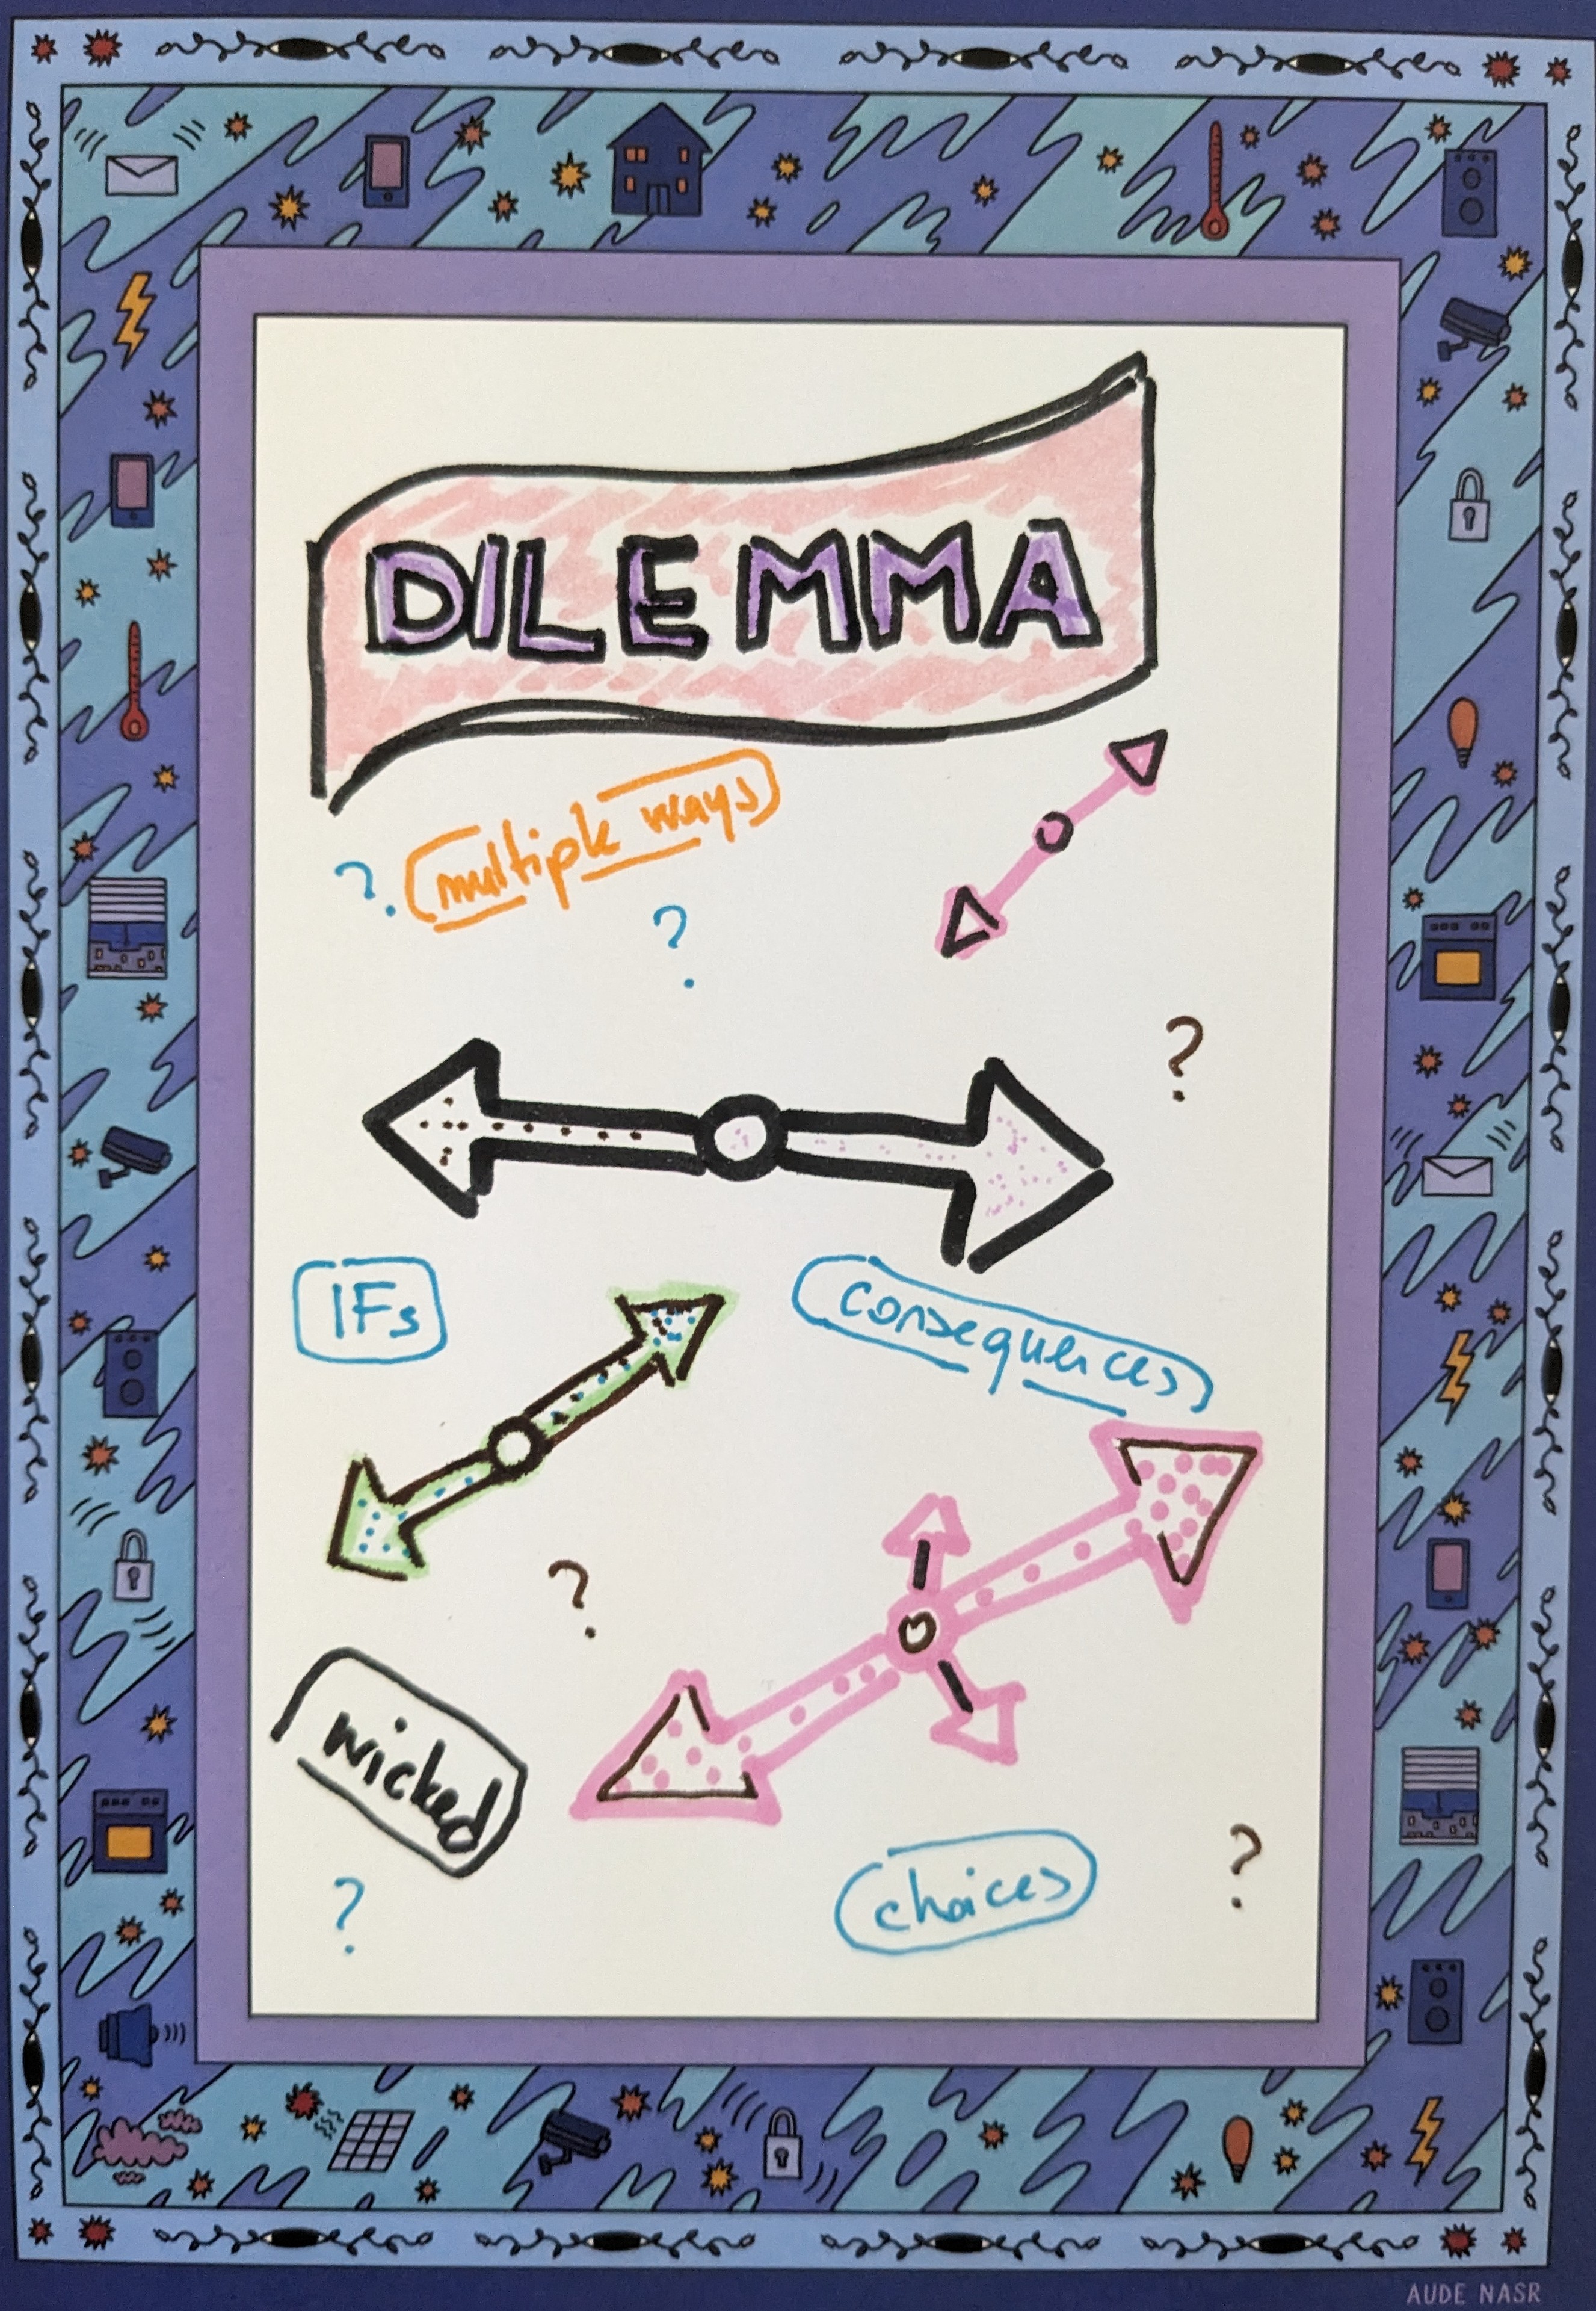 DILEMMA
multiple ways
?
?
?
IFs
consequences
?
wicked
?
choices
?
AUDE NASR